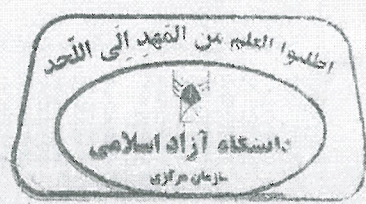 اطلبوا العلم من المَهدِ إلَی اللّحد
دانشگاه آزاد اسلامی
سازمان مرکزی